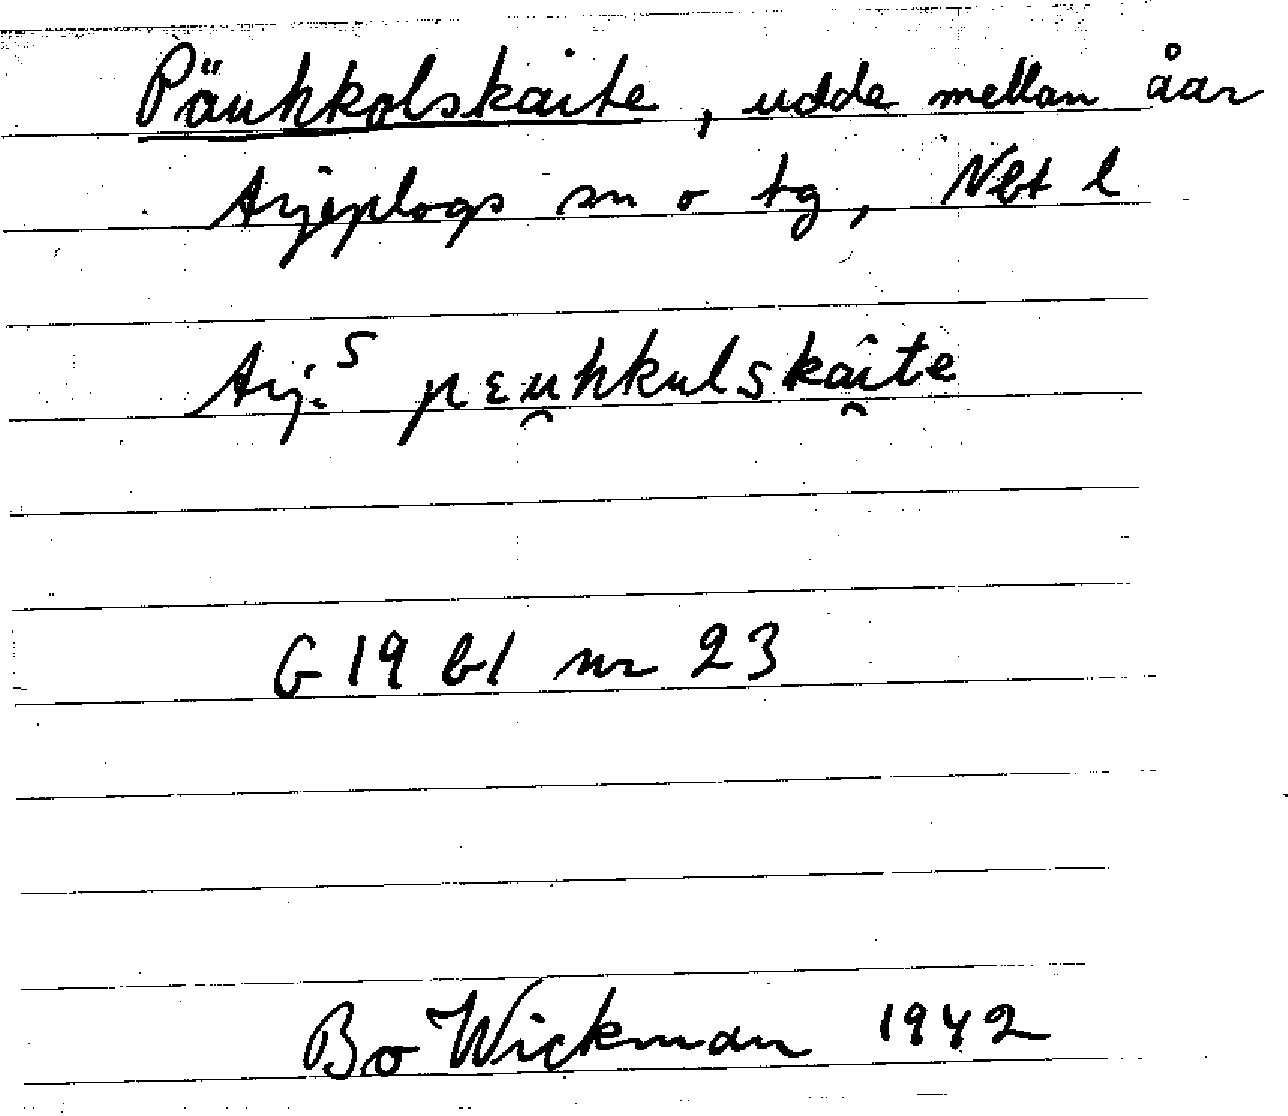 Päuhkolskaite, udde mellan åar
Arjeplogs sn o tg, Nbt l
Arj. S pɛu̯hkulskāi̯te
G 19 bl nr 23
Bo Wickman 1942